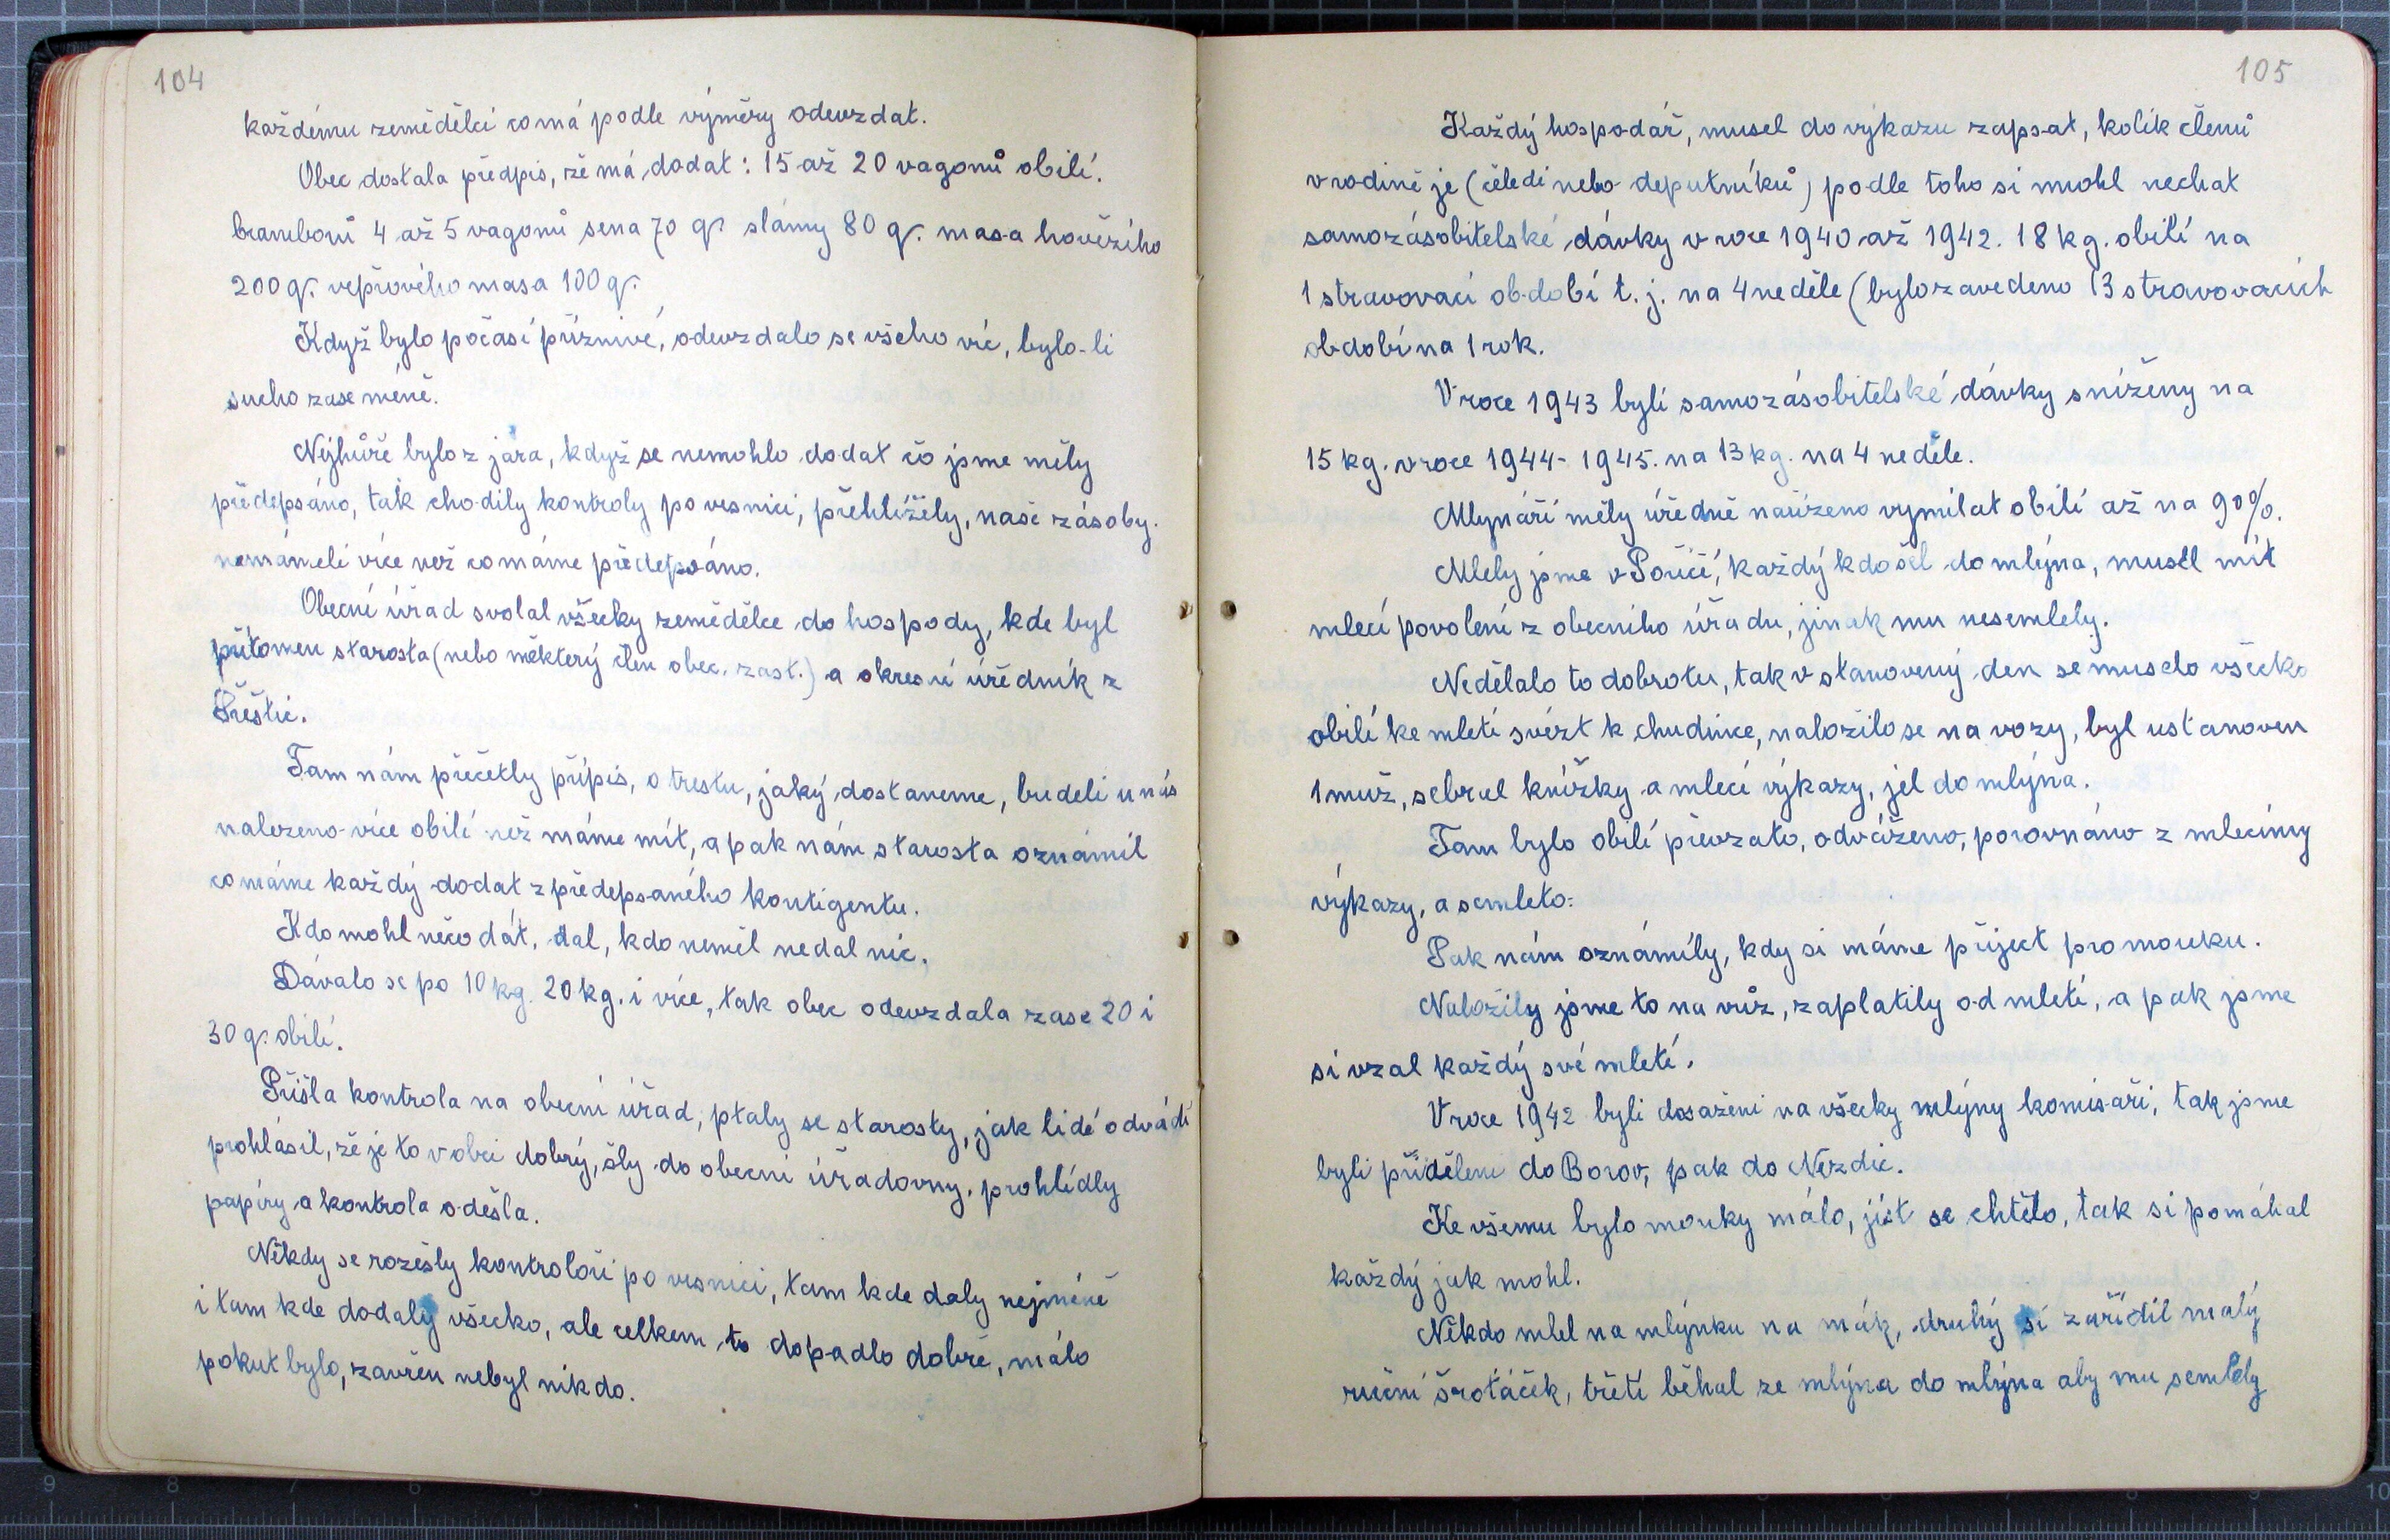 104
každému zemědělci co má podle výměry odevzdat.
Obec dostala předpis, že má dodat: 15 až 20 vagonů obilí.
bramborů 4 až 5 vagonů sena 70 q. slámy 80 q. masa hovězího
200 q. vepřového masa 100 q.
Když bylo počasí příznivé, odevzdalo se všeho víc, bylo-li
sucho zase méně.
Nejhůře bylo z jara, když se nemohlo dodat co jsme měly
předepsáno, tak chodily kontroly po vesnici, přehlížely, naše zásoby.
nemámeli více než co máme předepsáno.
Obecní úřad svolal všecky zemědělce do hospody, kde byl
přítomen starosta (nebo některý člen obec. zast.) a okresní úředník z
Přeštic.
Tam nám přečetly přípis, o trestu, jaký dostaneme, budeli u nás
nalezeno více obilí než máme mít, a pak nám starosta oznámil
co máme každý dodat z předepsaného kontigentu.
Kdo mohl něco dát, dal, kdo neměl nedal nic.
Dávalo se po 10 kg. 20 kg. i více, tak obec odevzdala zase 20 i
30 q. obilí.
Přišla kontrola na obecní úřad, ptaly se starosty, jak lidé odvádí
prohlásil, že je to v obci dobrý, šly do obecní úřadovny, prohlídly
papíry a kontrola odešla.
Někdy se rozešly kontroloři po vesnici, tam kde daly nejméně
i tam kde dodaly všecko, ale celkem to dopadlo dobře, málo
pokut bylo, zavřen nebyl nikdo.
105
Každý hospodář, musel do výkazu zapsat, kolik členů
v rodině je (čeledi nebo deputníků) podle toho si mohl nechat
samozásobitelské dávky v roce 1940 až 1942. 18 kg. obilí na
1 stravovací období t. j. na 4 neděle (bylo zavedeno 13 stravovacích
období na 1 rok.
V roce 1943 byli samozásobitelské dávky sníženy na
15 kg. v roce 1944 - 1945. na 13 kg. na 4 neděle.
Mlynáři měly úředně nařízeno vymílat obilí až na 90%.
Mlely jsme v Poříčí, každý kdo šel do mlýna, musel mít
mlecí povolení z obecního úřadu, jinak mu nesemlely.
Nedělalo to dobrotu, tak v stanovený den se muselo všecko
obilí ke mletí svézt k chudince, naložilo se na vozy, byl ustanoven
1 muž, sebral knížky a mlecí výkazy, jel do mlýna.
Tam bylo obilí převzato, odváženo, porovnáno z mlecímy
výkazy, a semleto:
Pak nám oznámily, kdy si máme přiject pro mouku.
Naložily jsme to na vůz, zaplatily od mletí, a pak jsme
si vzal každý své mletí.
V roce 1942 byli dosazeni na všecky mlýny komisaři, tak jsme
byli přiděleni do Borov, pak do Nezdic.
Ke všemu bylo mouky málo, jíst se chtělo, tak si pomáhal
každý jak mohl.
Někdo mlel na mlýnku na mák, druhý si zařídil malý
ruční šrotáček, třetí běhal ze mlýna do mlýna aby mu semlely